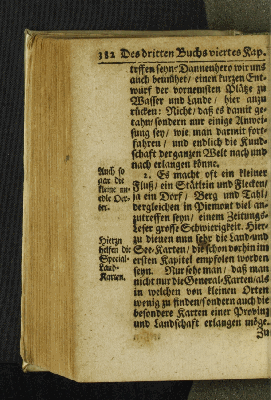 382 Des dritten Buchs viertes Kap.
treffen seyn. Dannenhero wir uns
auch bemühet/ einen kurzen Ent-
wurf der vornemsten Plätze zu
Wasser und Lande/ hier anzu
rücken: Nicht/ daß es damit ge-
tahn/ sondern nur einige Anwei-
sung sey/ wie man darmit fort-
fahren/ und endlich die Kund-
schaft der ganzen Welt nach und
nach erlangen könne.
Auch so
gar die
kleine
Oer-
ter.
2. Es macht oft ein kleiner
Fluß/ ein Städlein und Flecken/
ja ein Dorf/ Berg und Tahl/
dergleichen in Piemont viel an-
zutreffen seyn/ einem Zeitungs-
Leser grosse Schwierigkeit. Hier-
Hierzu
helfen die
Special-
Land-
Karten.
zu dienen nun sehr die Land-und
See-Karten/ die schon vorhin im
ersten Kapitel empfolen worden
seyn. Nur sehe man/ daß man
nicht nur die General-Karten/als
in welchen von kleinen Orten
wenig zu finden/sondern auch die
besondere Karten einer Provinz
und Landschaft erlangen möge.
Zu